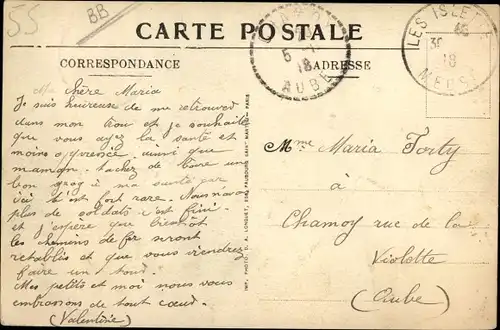 55
BB
CARTE POSTALE
CORRESPONDANCE
ADRESSE
CHAMOY
5
18
AUBE
LES ISLETTES
30
18
MEUSE
Ma chère Maria
Je suis heureuse de me retrouver
dans mon trou et je souhaite
que vous ayez la santé et
moins oppressée ainsi que
maman. tachez de boire un
bon grog à ma santé car
ici c'est fort rare. Nous navons
plus de soldats c'est fini
et j'espère que bientôt
les chemins de fer seront
rétablis et que vous viendrez
faire un tour.
Mes petits et moi nous vous
embrassons de tout cœur.
(Valentine)
IMP. PHOTO. A. LONGUET, FAUBOURG SAINT MARTIN - PARIS
Mme Maria Forty
à
Chamoy rue de la
Violotte
(Aube)